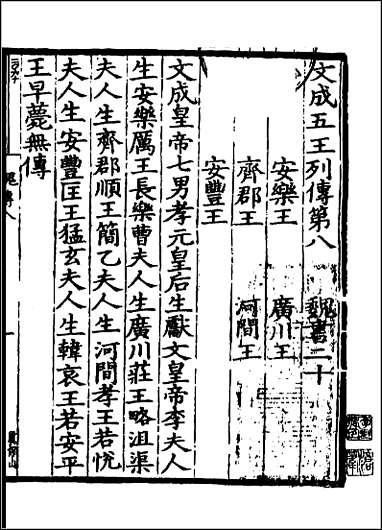 文成五王列傳第八 魏書二十
安樂王 廣川王
齊郡王 河間王
安豐王
文成皇帝七男孝元皇后生獻文皇帝李夫人
生安樂厲王長樂曹夫人生廣川莊王略沮渠
夫人生齊郡順王簡乙夫人生河間孝王若悅
夫人生安豐匡王猛玄夫人生韓哀王若安平
王早薨無傳